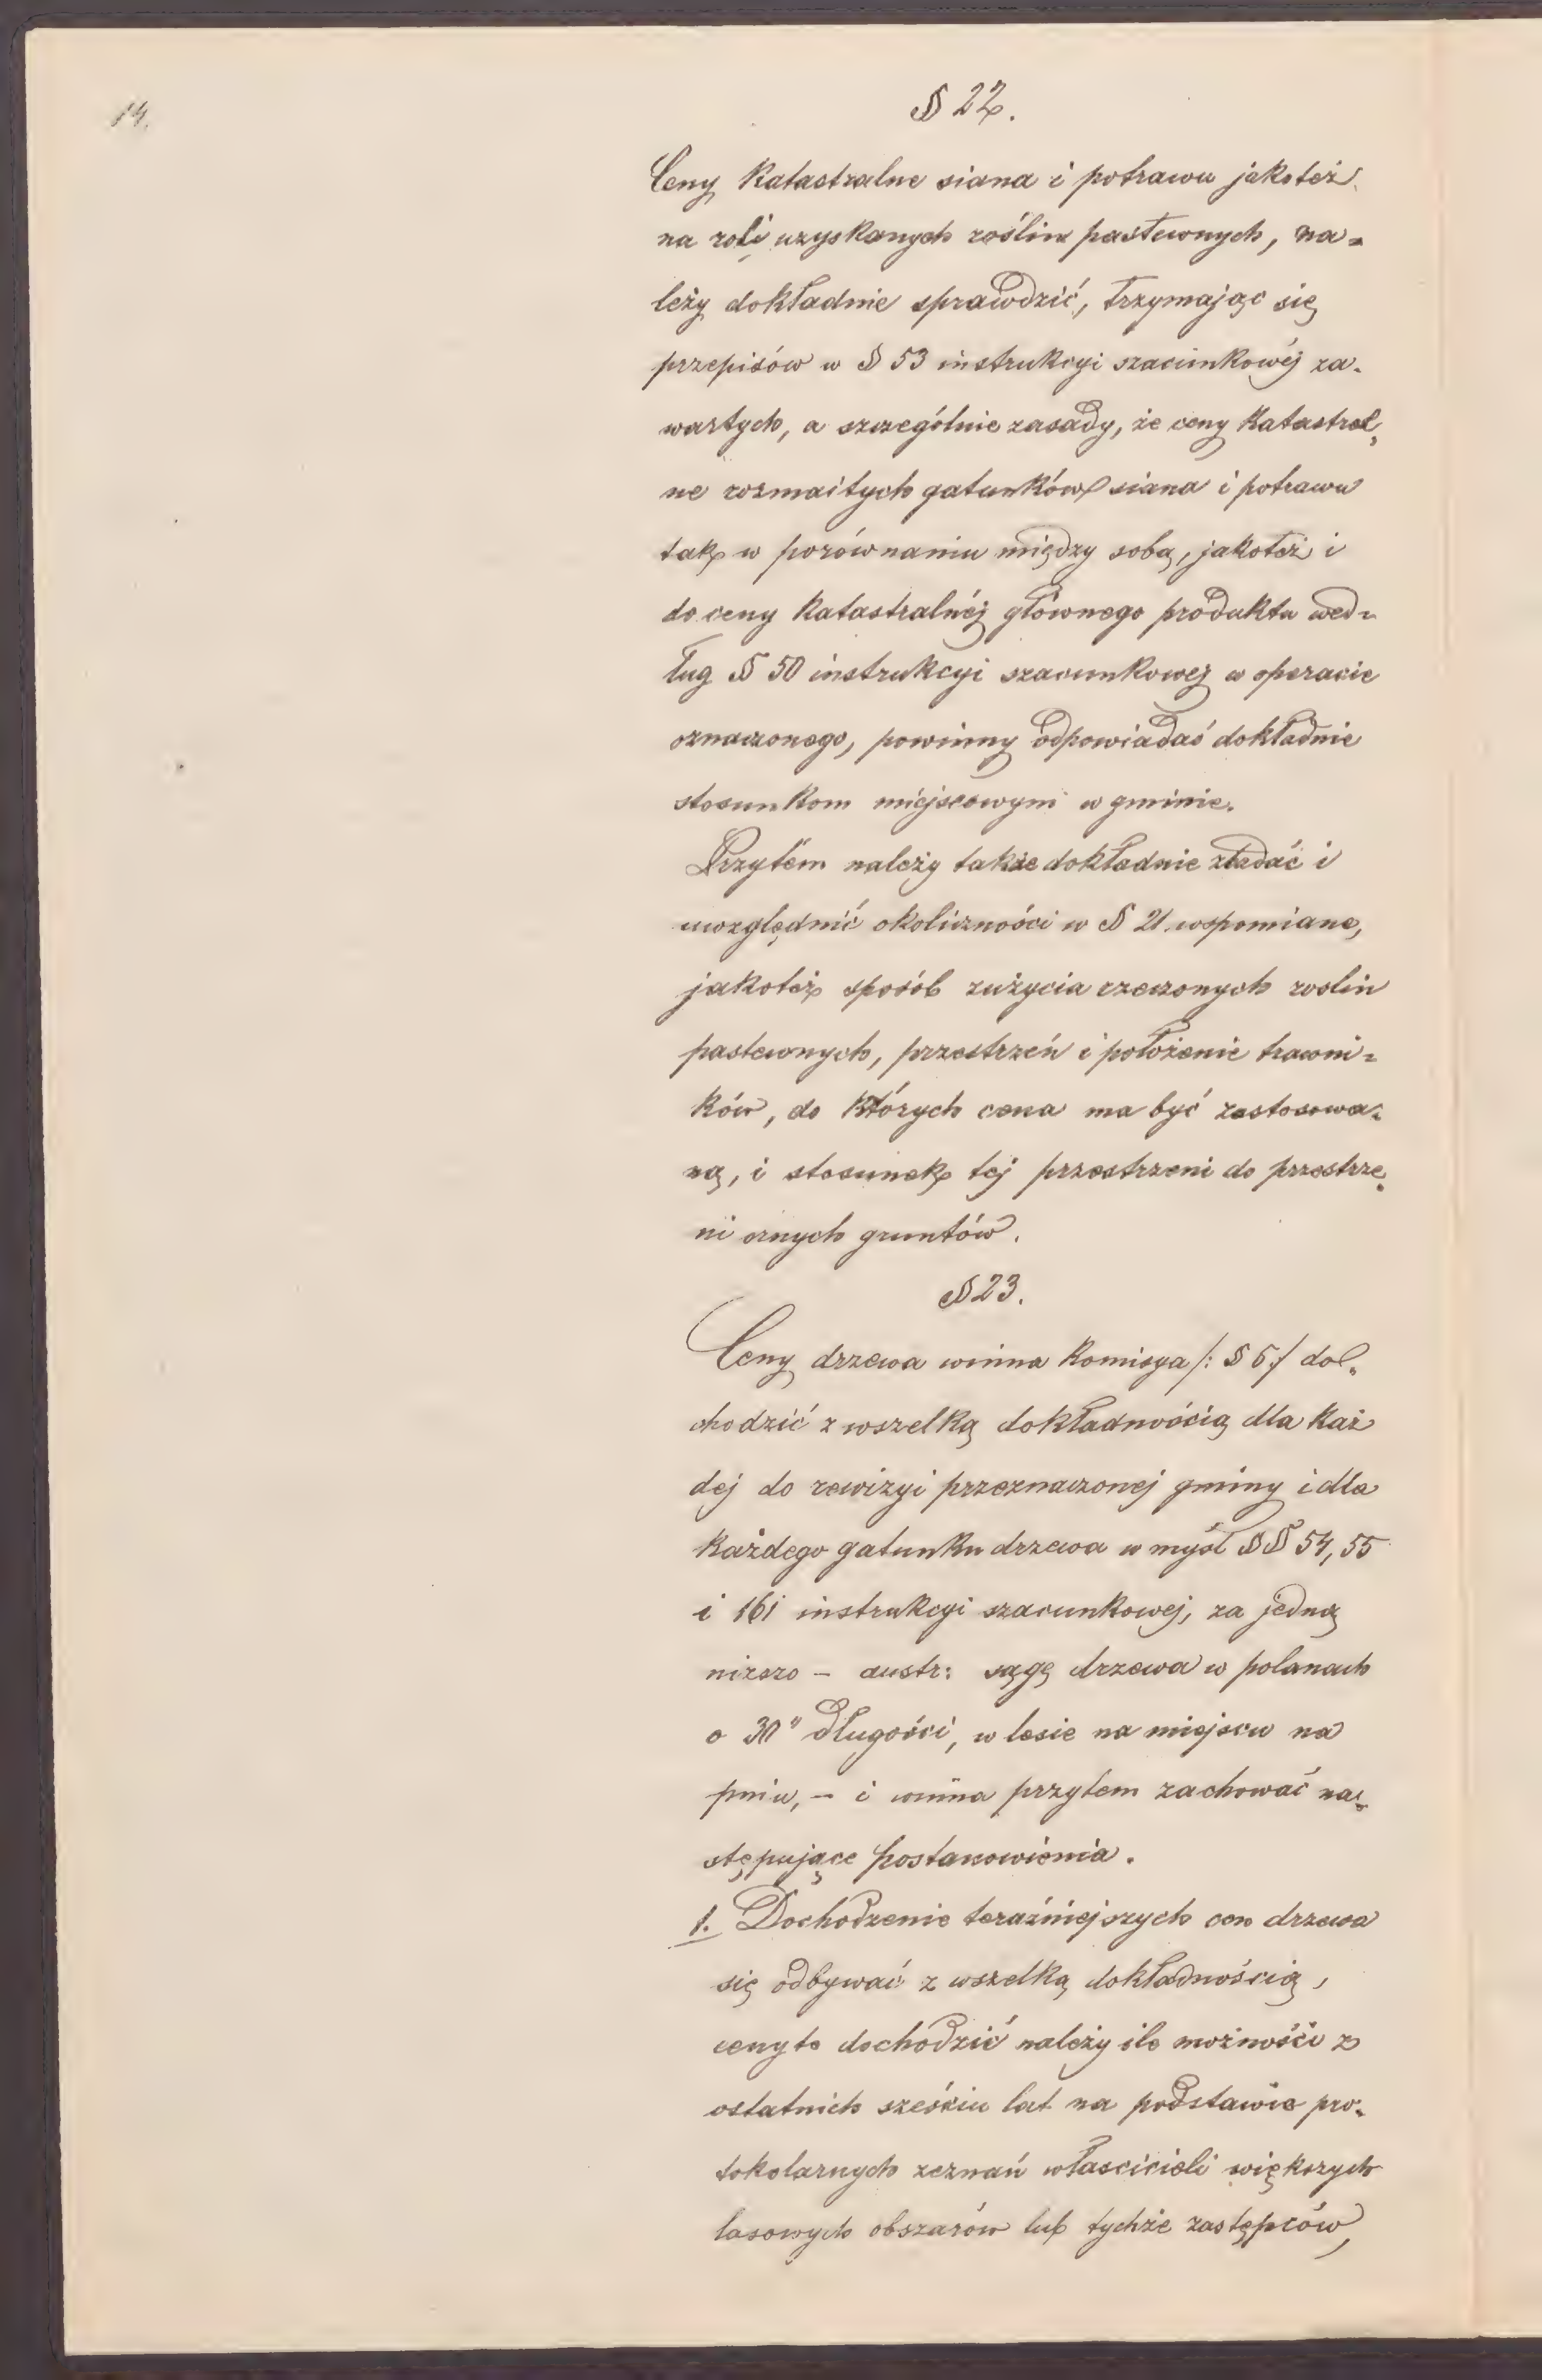 14.
§ 22.
Ceny katastralne siana i potrawu jakoteż
na roli uzyskanych roślin pastewnych, na-
leży dokładnie sprawdzić, trzymając się
przepisów w § 53 instrukcyi szacunkowéj za-
wartych, a szczególnie zasady, że ceny katastral-
ne rozmaitych gatunków siana i potrawu
tak w porównaniu między sobą, jakoteż i
do ceny katastralnéj głównego produktu wed-
ług § 50 instrukcyi szacunkowej w operacie
oznaczonego, powinny odpowiadać dokładnie
stosunkom miejscowym w gminie.
Przytém należy także dokładnie zbadać i
uwzględnić okoliczności w § 21 wspomiane,
jakoteż sposób zużycia rzeczonych roslin
pastewnych, przestrzeń i położenie trawni-
ków, do których cena ma być zastosowa-
ną, i stosunek tej przestrzeni do przestrze-
ni ornych gruntów.
§ 23.
Ceny drzewa winna komisya /: § 6 :/ do-
chodzić z wszelką dokładnością dla każ
dej do rewizyi przeznaczonej gminy i dla
każdego gatunku drzewa w myśl §§ 54, 55
i 161 instrukcyi szacunkowej, za jedną
niższo - austr: sągę drzewa w polanach
o 30" długości, w lesie na miejscu na
pniu, - i winna przytem zachować na-
stępujące postanowienia.
1. Dochodzenie teraźniejszych cen drzewa
się odbywać z wszelką dokładnością,
ceny te dochodzić należy ile możności z
ostatnich sześciu lat na podstawie pro-
tokolarnych zeznań własciicieli większych
lasowych obszarów lub tychże zastępców,